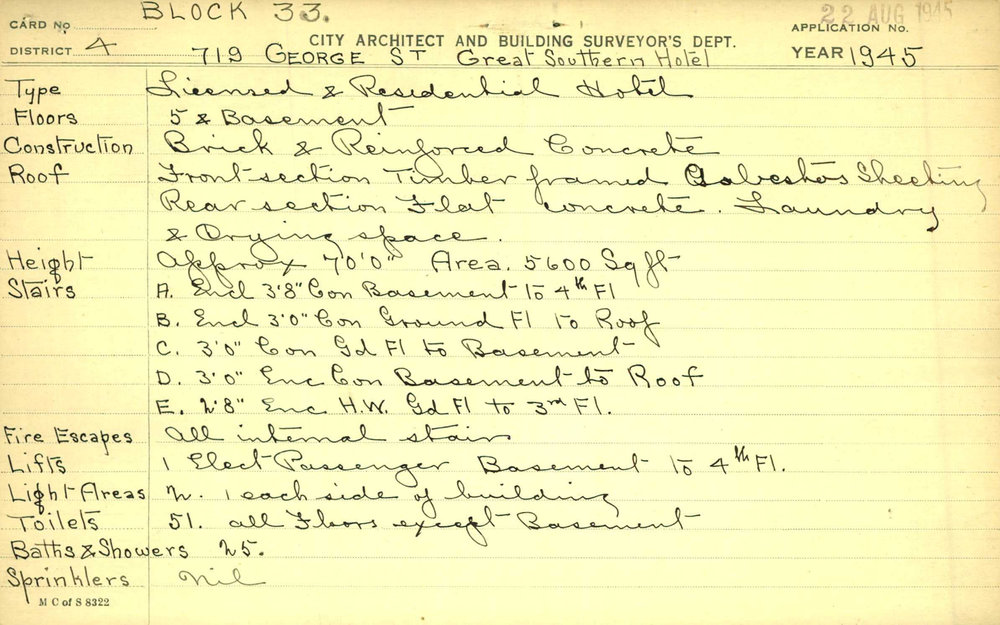 BLOCK 33.
CARD No
22 AUG 1945
APPLICATION No.
DISTRICT 4
CITY ARCHITECT AND BUILDING SURVEYOR'S DEPT.
YEAR 1945
719 GEORGE ST Great Southern Hotel
Type Licensed & Residential Hotel
Floors 5 & Basement
Construction Brick & Reinforced Concrete
Roof Front section Timber framed Galbestos Sheeting
Rear section Flat concrete. Laundry
& Drying space.
Height Approx 70'0" Area. 5600 Sq ft
Stairs A. Encl 3'8" Con Basement to 4th Fl
B. Encl 3'0" Con Ground Fl to Roof
C. 3'0" Con Gd Fl to Basement
D. 3'0" Enc Con Basement to Roof
E. 2'8" Enc H.W. Gd Fl to 3rd Fl.
Fire Escapes All internal stairs
Lifts 1 Elect Passenger Basement to 4th Fl.
Light Areas 2. 1 each side of building
Toilets 51. all Floors except Basement
Baths & Showers 25.
Sprinklers Nil
M C of S 8322